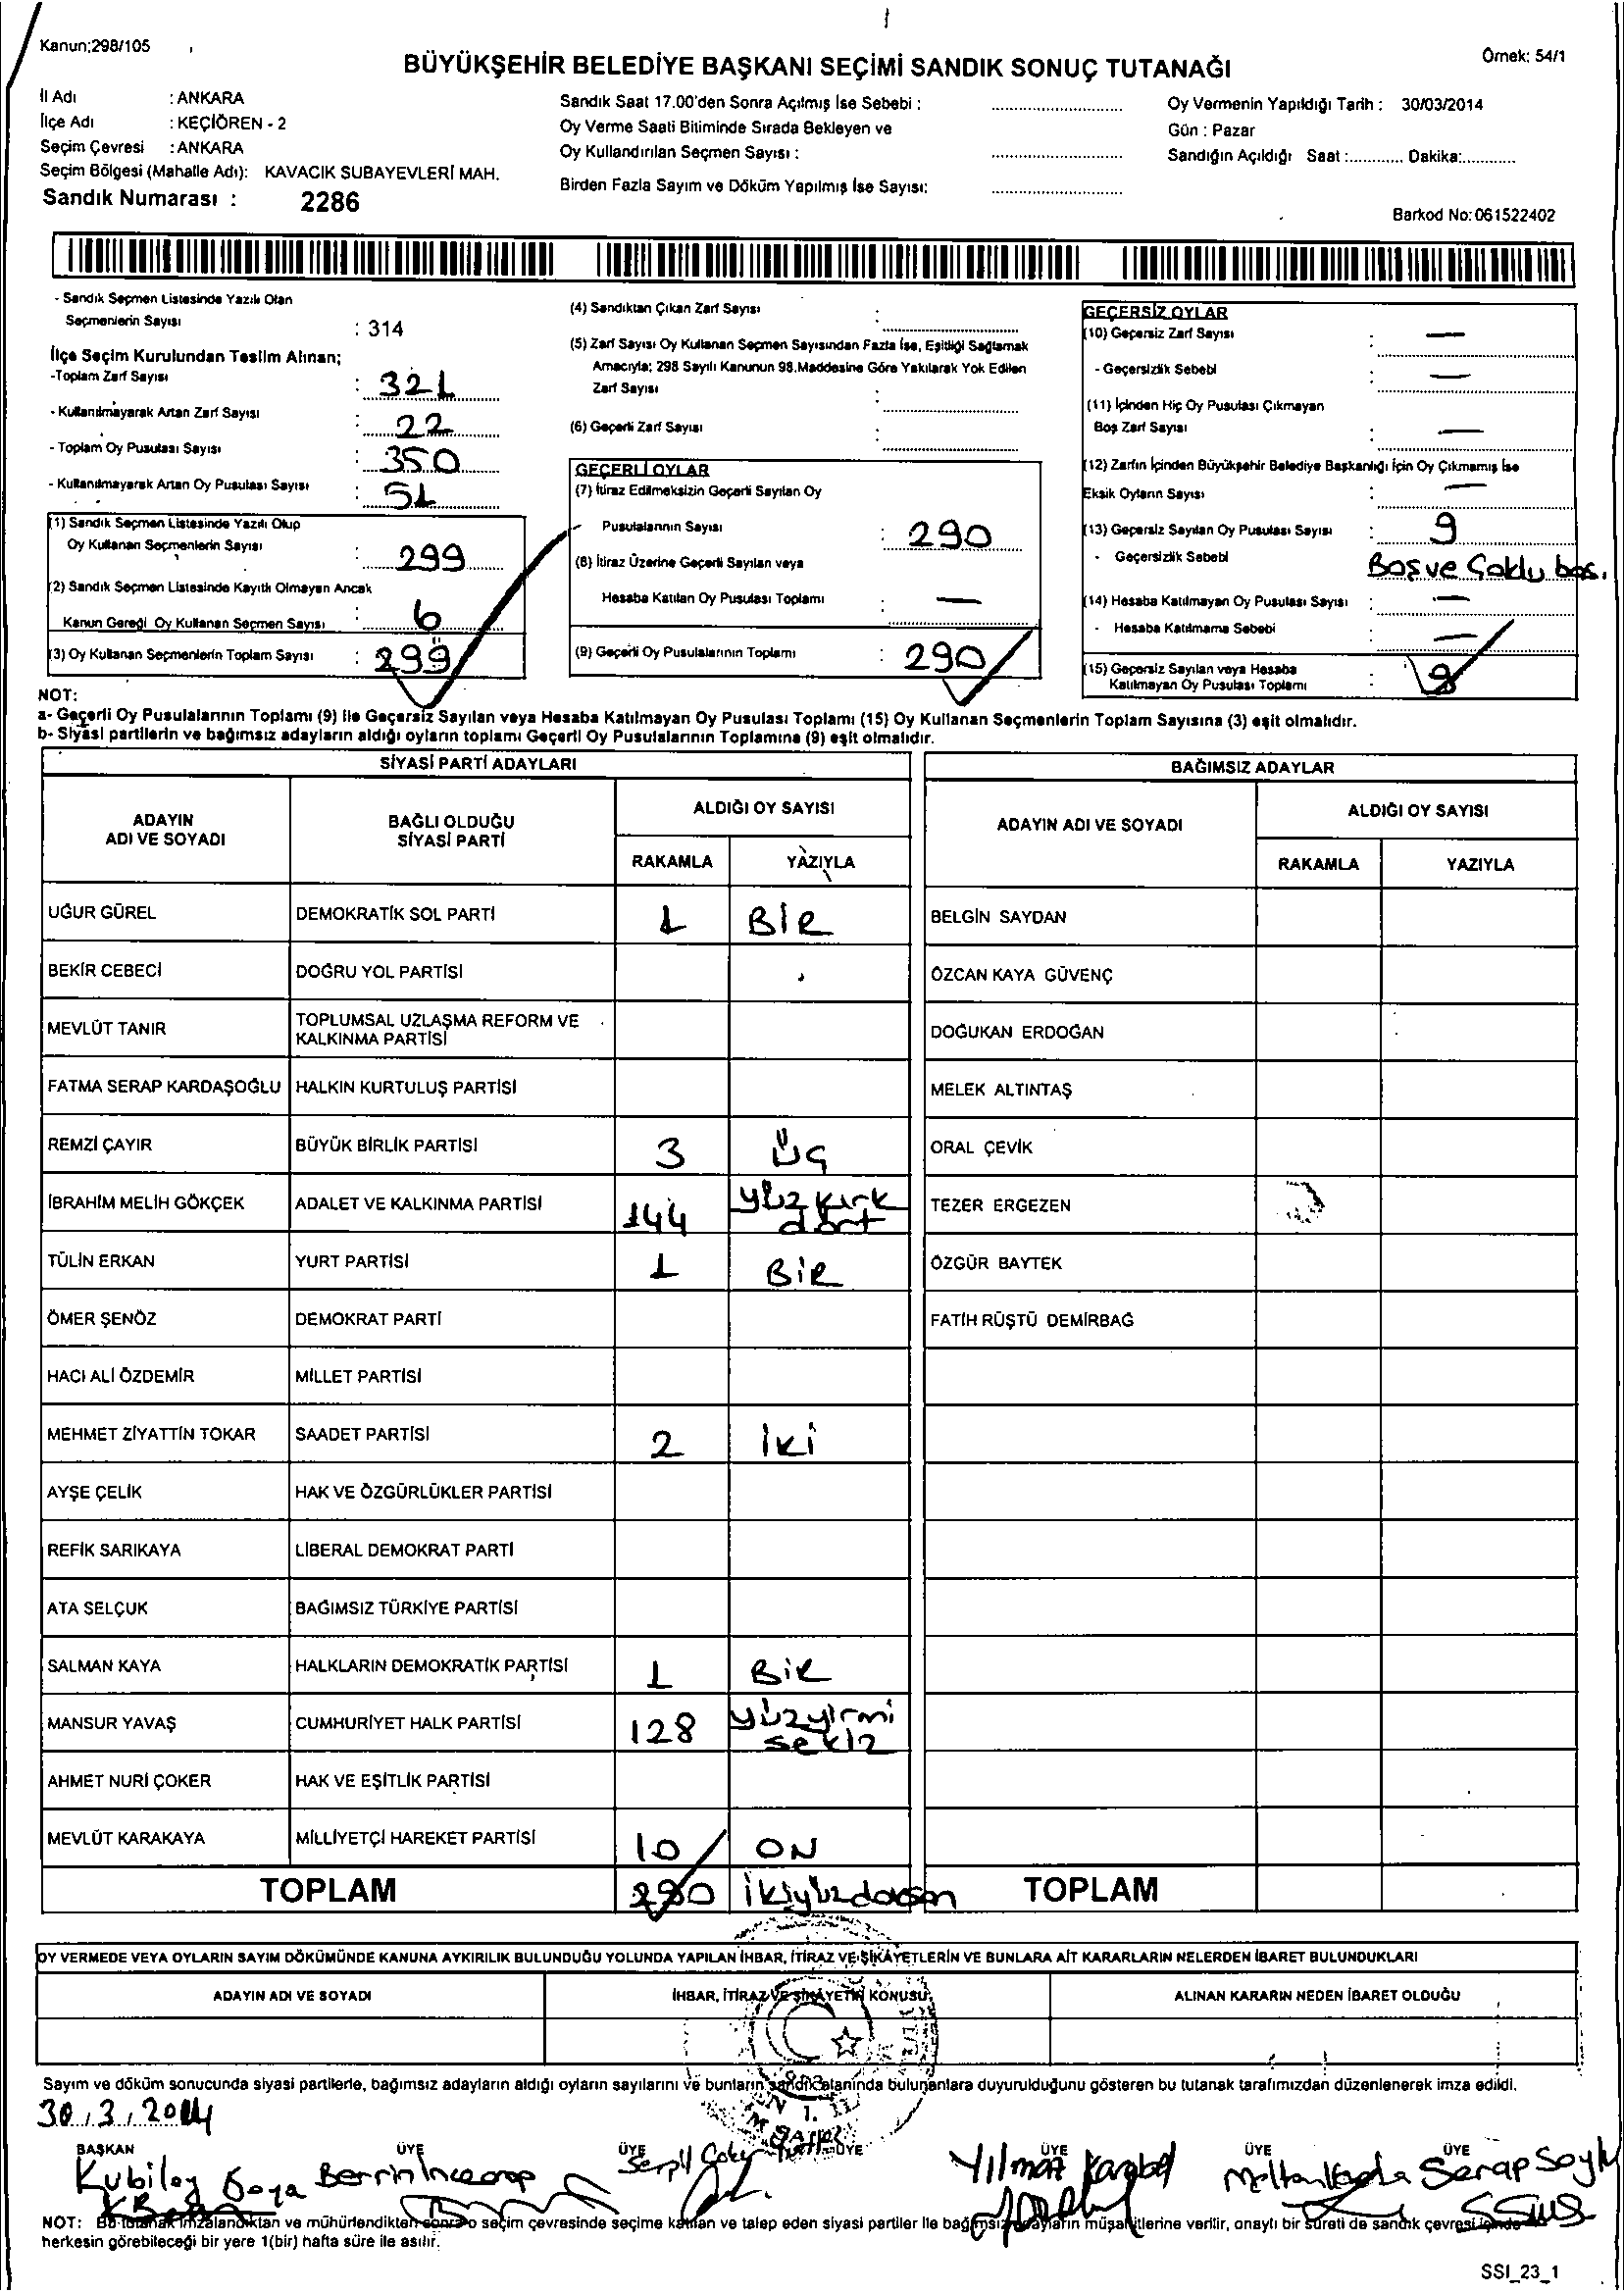 Kanun;298/105
Örnek: 54/1
BÜYÜKŞEHİR BELEDİYE BAŞKANI SEÇİMİ SANDIK SONUÇ TUTANAĞI
İl Adı : ANKARA
İlçe Adı : KEÇİÖREN - 2
Seçim Çevresi : ANKARA
Seçim Bölgesi (Mahalle Adı): KAVACIK SUBAYEVLERİ MAH.
Sandık Numarası : 2286
Sandık Saat 17.00'den Sonra Açılmış İse Sebebi :
Oy Verme Saati Bitiminde Sırada Bekleyen ve
Oy Kullandırılan Seçmen Sayısı :
Birden Fazla Sayım ve Döküm Yapılmış İse Sayısı:
Oy Vermenin Yapıldığı Tarih : 30/03/2014
Gün : Pazar
Sandığın Açıldığı Saat :............ Dakika:............
Barkod No: 061522402
- Sandık Seçmen Listesinde Yazılı Olan
Seçmenlerin Sayısı : 314
İlçe Seçim Kurulundan Teslim Alınan;
-Toplam Zarf Sayısı : 321
- Kullanılmayarak Artan Zarf Sayısı : 22
- Toplam Oy Pusulası Sayısı : 350
- Kullanılmayarak Artan Oy Pusulası Sayısı : 51
(1) Sandık Seçmen Listesinde Yazılı Olup
Oy Kullanan Seçmenlerin Sayısı : 299
(2) Sandık Seçmen Listesinde Kayıtlı Olmayan Ancak
Kanun Gereği Oy Kullanan Seçmen Sayısı : 6
(3) Oy Kullanan Seçmenlerin Toplam Sayısı : 299
(4) Sandıktan Çıkan Zarf Sayısı :
(5) Zarf Sayısı Oy Kullanan Seçmen Sayısından Fazla İse, Eşitliği Sağlamak
Amacıyla; 298 Sayılı Kanunun 98.Maddesine Göre Yakılarak Yok Edilen
Zarf Sayısı :
(6) Geçerli Zarf Sayısı :
GEÇERLİ OYLAR
(7) İtiraz Edilmeksizin Geçerli Sayılan Oy
Pusulalarının Sayısı : 290
(8) İtiraz Üzerine Geçerli Sayılan veya
Hesaba Katılan Oy Pusulası Toplamı : —
(9) Geçerli Oy Pusulalarının Toplamı : 290
GEÇERSİZ OYLAR
(10) Geçersiz Zarf Sayısı : —
- Geçersizlik Sebebi : —
(11) İçinden Hiç Oy Pusulası Çıkmayan
Boş Zarf Sayısı : —
(12) Zarfın İçinden Büyükşehir Belediye Başkanlığı İçin Oy Çıkmamış İse
Eksik Oyların Sayısı : —
(13) Geçersiz Sayılan Oy Pusulası Sayısı : 9
- Geçersizlik Sebebi Boş ve Çoklu bas.
(14) Hesaba Katılmayan Oy Pusulası Sayısı : —
- Hesaba Katılmama Sebebi : —
(15) Geçersiz Sayılan veya Hesaba
Katılmayan Oy Pusulası Toplamı : 9
NOT:
a- Geçerli Oy Pusulalarının Toplamı (9) İle Geçersiz Sayılan veya Hesaba Katılmayan Oy Pusulası Toplamı (15) Oy Kullanan Seçmenlerin Toplam Sayısına (3) eşit olmalıdır.
b- Siyasi partilerin ve bağımsız adayların aldığı oyların toplamı Geçerli Oy Pusulalarının Toplamına (9) eşit olmalıdır.
SİYASİ PARTİ ADAYLARI
ADAYIN
ADI VE SOYADI
BAĞLI OLDUĞU
SİYASİ PARTİ
ALDIĞI OY SAYISI
RAKAMLA YAZIYLA
UĞUR GÜREL DEMOKRATİK SOL PARTİ 1 BİR
BEKİR CEBECİ DOĞRU YOL PARTİSİ
MEVLÜT TANIR TOPLUMSAL UZLAŞMA REFORM VE
KALKINMA PARTİSİ
FATMA SERAP KARDAŞOĞLU HALKIN KURTULUŞ PARTİSİ
REMZİ ÇAYIR BÜYÜK BİRLİK PARTİSİ 3 ÜÇ
İBRAHİM MELİH GÖKÇEK ADALET VE KALKINMA PARTİSİ 144 yüz kırk
dört
TÜLİN ERKAN YURT PARTİSİ 1 BİR
ÖMER ŞENÖZ DEMOKRAT PARTİ
HACI ALİ ÖZDEMİR MİLLET PARTİSİ
MEHMET ZİYATTİN TOKAR SAADET PARTİSİ 2 İki
AYŞE ÇELİK HAK VE ÖZGÜRLÜKLER PARTİSİ
REFİK SARIKAYA LİBERAL DEMOKRAT PARTİ
ATA SELÇUK BAĞIMSIZ TÜRKİYE PARTİSİ
SALMAN KAYA HALKLARIN DEMOKRATİK PARTİSİ 1 BİR
MANSUR YAVAŞ CUMHURİYET HALK PARTİSİ 128 yüzyirmi
sekiz
AHMET NURİ ÇOKER HAK VE EŞİTLİK PARTİSİ
MEVLÜT KARAKAYA MİLLİYETÇİ HAREKET PARTİSİ 10 ON
TOPLAM 290 ikiyüzdoksan
BAĞIMSIZ ADAYLAR
ADAYIN ADI VE SOYADI
ALDIĞI OY SAYISI
RAKAMLA YAZIYLA
BELGİN SAYDAN
ÖZCAN KAYA GÜVENÇ
DOĞUKAN ERDOĞAN
MELEK ALTINTAŞ
ORAL ÇEVİK
TEZER ERGEZEN
ÖZGÜR BAYTEK
FATİH RÜŞTÜ DEMİRBAĞ
TOPLAM
OY VERMEDE VEYA OYLARIN SAYIM DÖKÜMÜNDE KANUNA AYKIRILIK BULUNDUĞU YOLUNDA YAPILAN İHBAR, İTİRAZ VE ŞİKAYETLERİN VE BUNLARA AİT KARARLARIN NELERDEN İBARET BULUNDUKLARI
ADAYIN ADI VE SOYADI İHBAR, İTİRAZ VE ŞİKAYETİN KONUSU ALINAN KARARIN NEDEN İBARET OLDUĞU
Sayım ve döküm sonucunda siyasi partilerle, bağımsız adayların aldığı oyların sayılarını ve bunların sandık alanında bulunanlara duyurulduğunu gösteren bu tutanak tarafımızdan düzenlenerek imza edildi.
30.3.2014
BAŞKAN ÜYE ÜYE ÜYE ÜYE ÜYE ÜYE
Kubilay Berrin Serpil Yılmaz Serap
NOT: Bu tutanak imzalandıktan ve mühürlendikten sonra o seçim çevresinde seçime katılan ve talep eden siyasi partiler ile bağımsız adayların müşahitlerine verilir, onaylı bir sureti de sandık çevresi içinde
herkesin görebileceği bir yere 1(bir) hafta süre ile asılır.
SSI_23_1